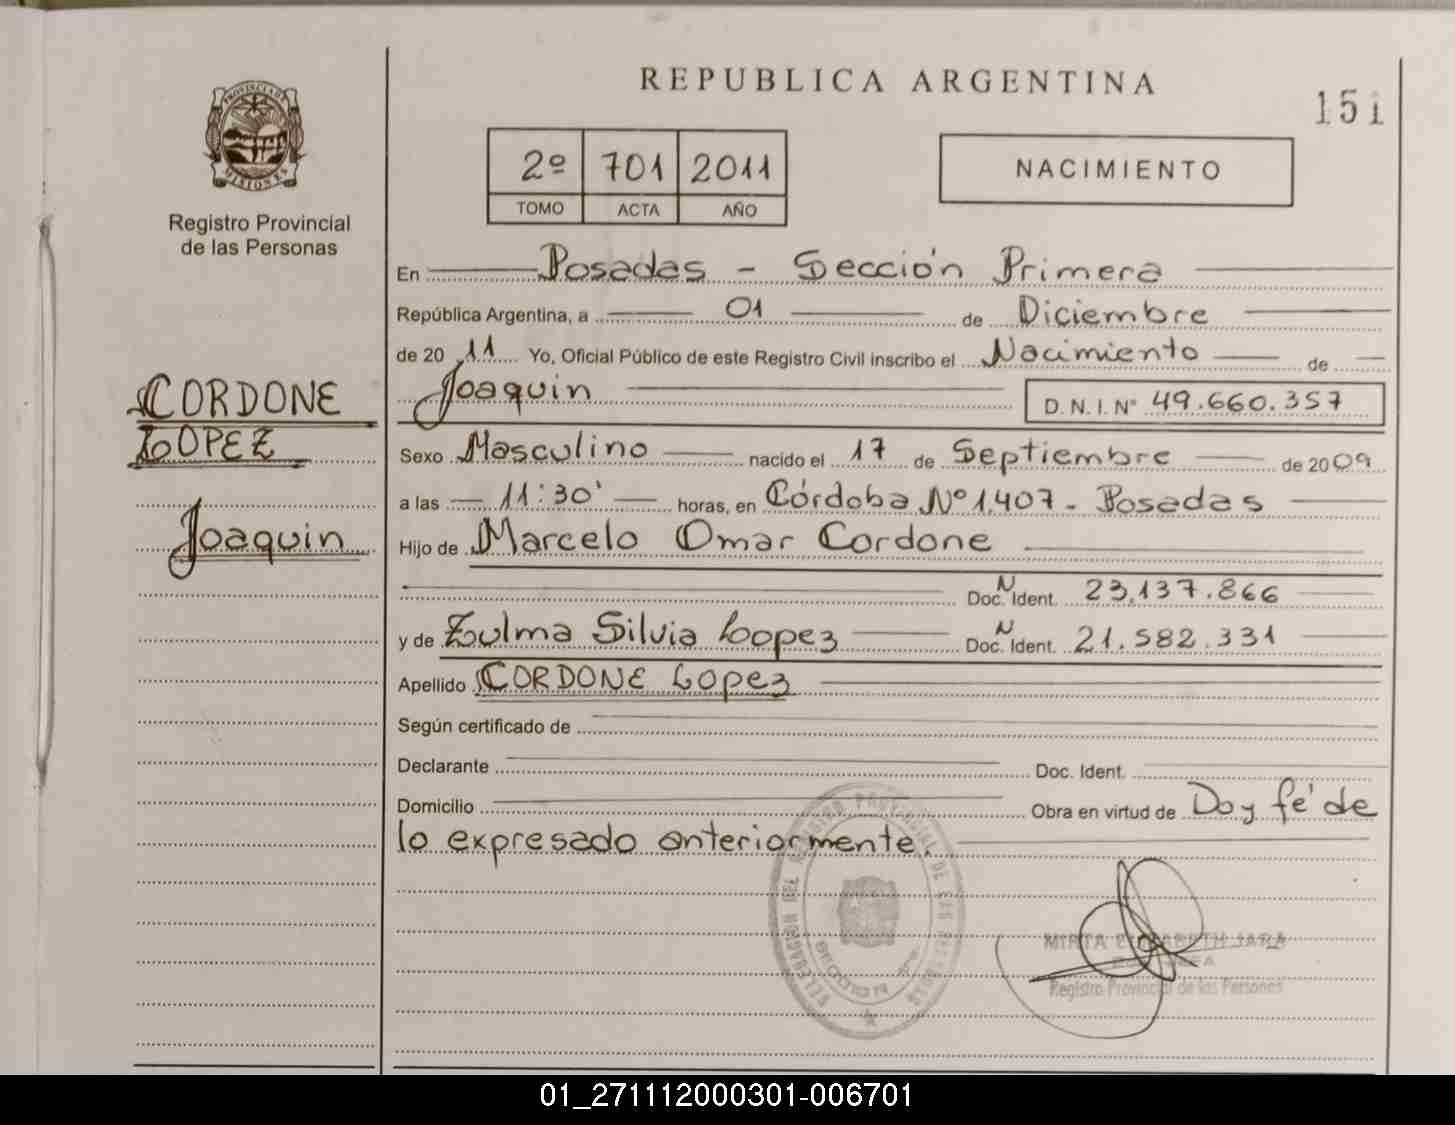 REPUBLICA ARGENTINA
151
PROVINCIA DE
MISIONES
Registro Provincial
de las Personas
2º 701 2011
TOMO ACTA AÑO
NACIMIENTO
En Posadas - Sección Primera
República Argentina, a 01 de Diciembre
de 2011 Yo, Oficial Público de este Registro Civil inscribo el Nacimiento de
Joaquin D. N. I. Nº 49.660.357
CORDONE
LOPEZ
Joaquin
Sexo Masculino nacido el 17 de Septiembre de 2009
a las 11:30' horas, en Córdoba Nº 1.407 - Posadas
Hijo de Marcelo Omar Cordone
Doc. N Ident. 23.137.866
y de Zulma Silvia Lopez Doc. N Ident. 21.582.331
Apellido CORDONE Lopez
Según certificado de
Declarante Doc. Ident.
Domicilio Obra en virtud de Doy fé de
lo expresado anteriormente.
DEL REGISTRO PROVINCIAL DE LAS PERSONAS
MIRTA ELIZABETH JARA
Registro Provincial de las Personas
01_271112000301-006701